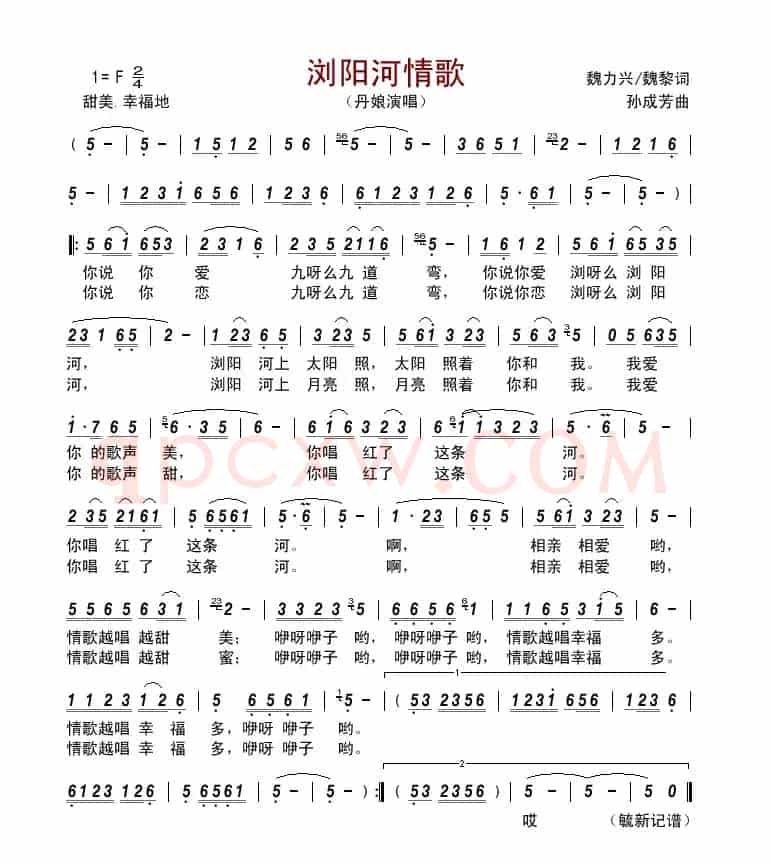 浏阳河情歌
1=F 2/4
魏力兴/魏黎词
甜美.幸福地
（丹娘演唱）
孙成芳曲
( 5 - | 5 - | 1 5 1 2 | 5 6 | 56 5 - | 5 - | 3 6 5 1 | 23 2 - | 1 2 1 6 |
5 - | 1 2 3 1 6 5 6 | 1 2 3 6 | 6 1 2 3 1 2 1 6 | 5 · 6 1 | 5 - | 5 - ) |
|: 5 6 1 6 5 3 | 2 3 1 6 | 2 3 5 2 1 1 6 | 56 5 - | 1 6 1 2 | 5 6 1 6 5 3 5 |
你说 你 爱 九呀么九 道 弯， 你说你爱 浏呀么 浏阳
你说 你 恋 九呀么九 道 弯， 你说你恋 浏呀么 浏阳
2 3 1 6 5 | 2 - | 1 2 3 6 5 | 3 2 3 5 | 5 6 1 3 2 3 | 5 6 3 3 5 | 0 5 6 3 5 |
河， 浏阳 河上 太阳 照，太阳 照着 你和 我。 我爱
河， 浏阳 河上 月亮 照，月亮 照着 你和 我。 我爱
1 · 7 6 5 | 5 6 · 3 5 | 6 - | 6 1 6 3 2 3 | 6 1 1 3 2 3 | 5 · 6 | 5 - |
你 的歌声 美， 你唱 红了 这条 河。
你 的歌声 甜， 你唱 红了 这条 河。
qpcxw.COM
2 3 5 2 1 6 1 | 5 6 5 6 1 | 5 · 6 | 5 - | 1 · 2 3 | 6 5 5 | 5 6 1 2 3 | 5 - |
你唱 红 了 这条 河。 啊， 相亲 相爱 哟，
你唱 红 了 这条 河。 啊， 相亲 相爱 哟，
5 5 6 5 6 3 1 | 23 2 - | 3 3 2 3 3 5 | 6 6 5 6 6 2 | 1 1 6 5 3 1 5 | 5 - |
情歌越唱 越甜 美；咿呀咿子 哟，咿呀咿子 哟，情歌越唱幸福 多。
情歌越唱 越甜 蜜；咿呀咿子 哟，咿呀咿子 哟，情歌越唱幸福 多。
1
1 1 2 3 1 2 6 | 5 5 6 6 1 | 1 5 - | ( 5 3 2 3 5 6 | 1 2 3 1 6 5 6 | 1 2 3 6 |
情歌越唱 幸 福 多，咿呀 咿子 哟。
情歌越唱 幸 福 多，咿呀 咿子 哟。
2
6 1 2 3 1 2 6 | 5 6 5 6 1 | 5 - | 5 - ) :| ( 5 3 2 3 5 6 | 5 - | 5 - | 5 0 ||
哎 （毓新记谱）